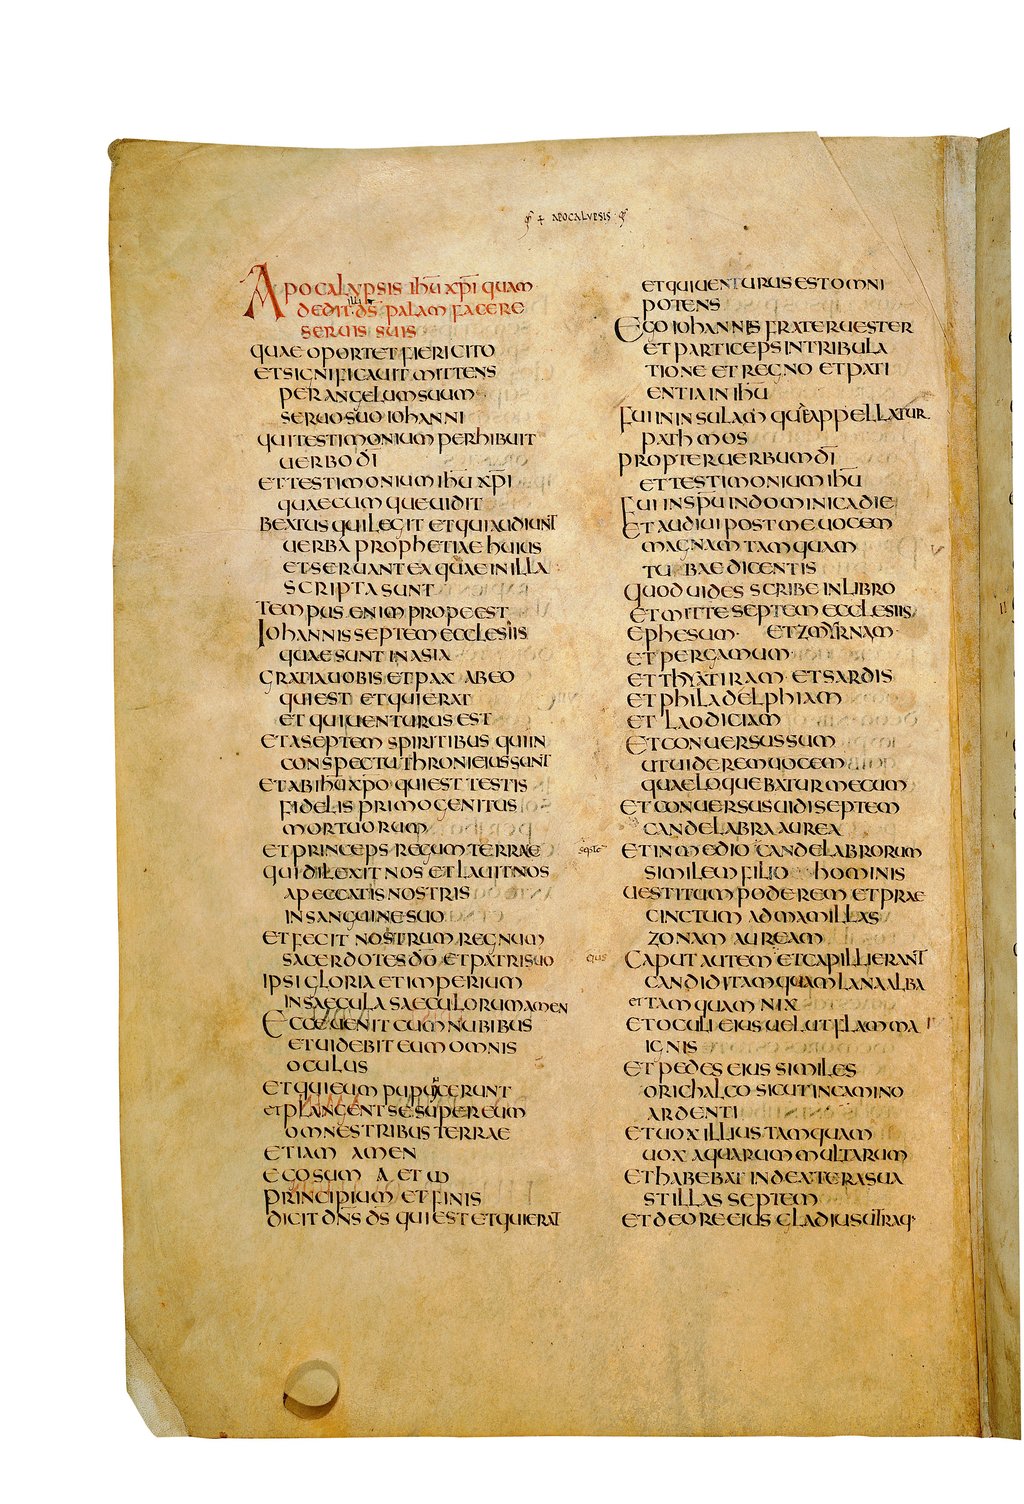 APOCALYPSIS
APOCALYPSIS IHU XPI QUAM
DEDIT ILLI DS PALAM FACERE
SERUIS SUIS
QUAE OPORTET FIERI CITO
ET SIGNIFICAUIT MITTENS
PER ANGELUM SUUM
SERUO SUO IOHANNI
QUI TESTIMONIUM PERHIBUIT
UERBO DI
ET TESTIMONIUM IHU XPI
QUAECUMQUE UIDIT
BEATUS QUI LEGIT ET QUI AUDIUNT
UERBA PROPHETIAE HUIUS
ET SERUANT EA QUAE IN ILLA
SCRIPTA SUNT
TEMPUS ENIM PROPE EST
IOHANNIS SEPTEM ECCLESIIS
QUAE SUNT IN ASIA
GRATIA UOBIS ET PAX AB EO
QUI EST ET QUI ERAT
ET QUI UENTURUS EST
ET A SEPTEM SPIRITIBUS QUI IN
CONSPECTU THRONI EIUS SUNT
ET AB IHU XPO QUI EST TESTIS
FIDELIS PRIMOGENITUS
MORTUORUM
ET PRINCEPS REGUM TERRAE
QUI DILEXIT NOS ET LAUIT NOS
A PECCATIS NOSTRIS
IN SANGUINE SUO
ET FECIT NOSTRUM REGNUM
SACERDOTES DO ET PATRI SUO
IPSI GLORIA ET IMPERIUM
IN SAECULA SAECULORUM AMEN
ECCE UENIT CUM NUBIBUS
ET UIDEBIT EUM OMNIS
OCULUS
ET QUI EUM PUPUGERUNT
ET PLANGENT SE SUPER EUM
OMNES TRIBUS TERRAE
ETIAM AMEN
EGO SUM A ET ω
PRINCIPIUM ET FINIS
DICIT DNS DS QUI EST ET QUI ERAT
ET QUI UENTURUS EST OMNI
POTENS
EGO IOHANNIS FRATER UESTER
ET PARTICEPS IN TRIBULA
TIONE ET REGNO ET PATI
ENTIA IN IHU
FUI IN INSULAM QUAE APPELLATUR
PATHMOS
PROPTER UERBUM DI
ET TESTIMONIUM IHU
FUI IN SPU IN DOMINICA DIE
ET AUDIUI POST ME UOCEM
MAGNAM TAMQUAM
TUBAE DICENTIS
QUOD UIDES SCRIBE IN LIBRO
ET MITTE SEPTEM ECCLESIIS
EPHESUM ET ZMYRNAM
ET PERGAMUM
ET THYATIRAM ET SARDIS
ET PHILADELPHIAM
ET LAODICIAM
ET CONUERSUS SUM
UT UIDEREM UOCEM
QUAE LOQUEBATUR MECUM
ET CONUERSUS UIDI SEPTEM
CANDELABRA AUREA
ET IN MEDIO CANDELABRORUM
SIMILEM FILIO HOMINIS
UESTITUM PODEREM ET PRAE
CINCTUM AD MAMILLAS
ZONAM AUREAM
CAPUT AUTEM EIUS ET CAPILLI ERANT
CANDIDI TAMQUAM LANA ALBA
ET TAMQUAM NIX
ET OCULI EIUS UELUT FLAMMA
IGNIS
ET PEDES EIUS SIMILES
ORICHALCO SICUT IN CAMINO
ARDENTI
ET UOX ILLIUS TAMQUAM
UOX AQUARUM MULTARUM
ET HABEBAT IN DEXTERA SUA
STILLAS SEPTEM
ET DE ORE EIUS GLADIUS UTRAQ